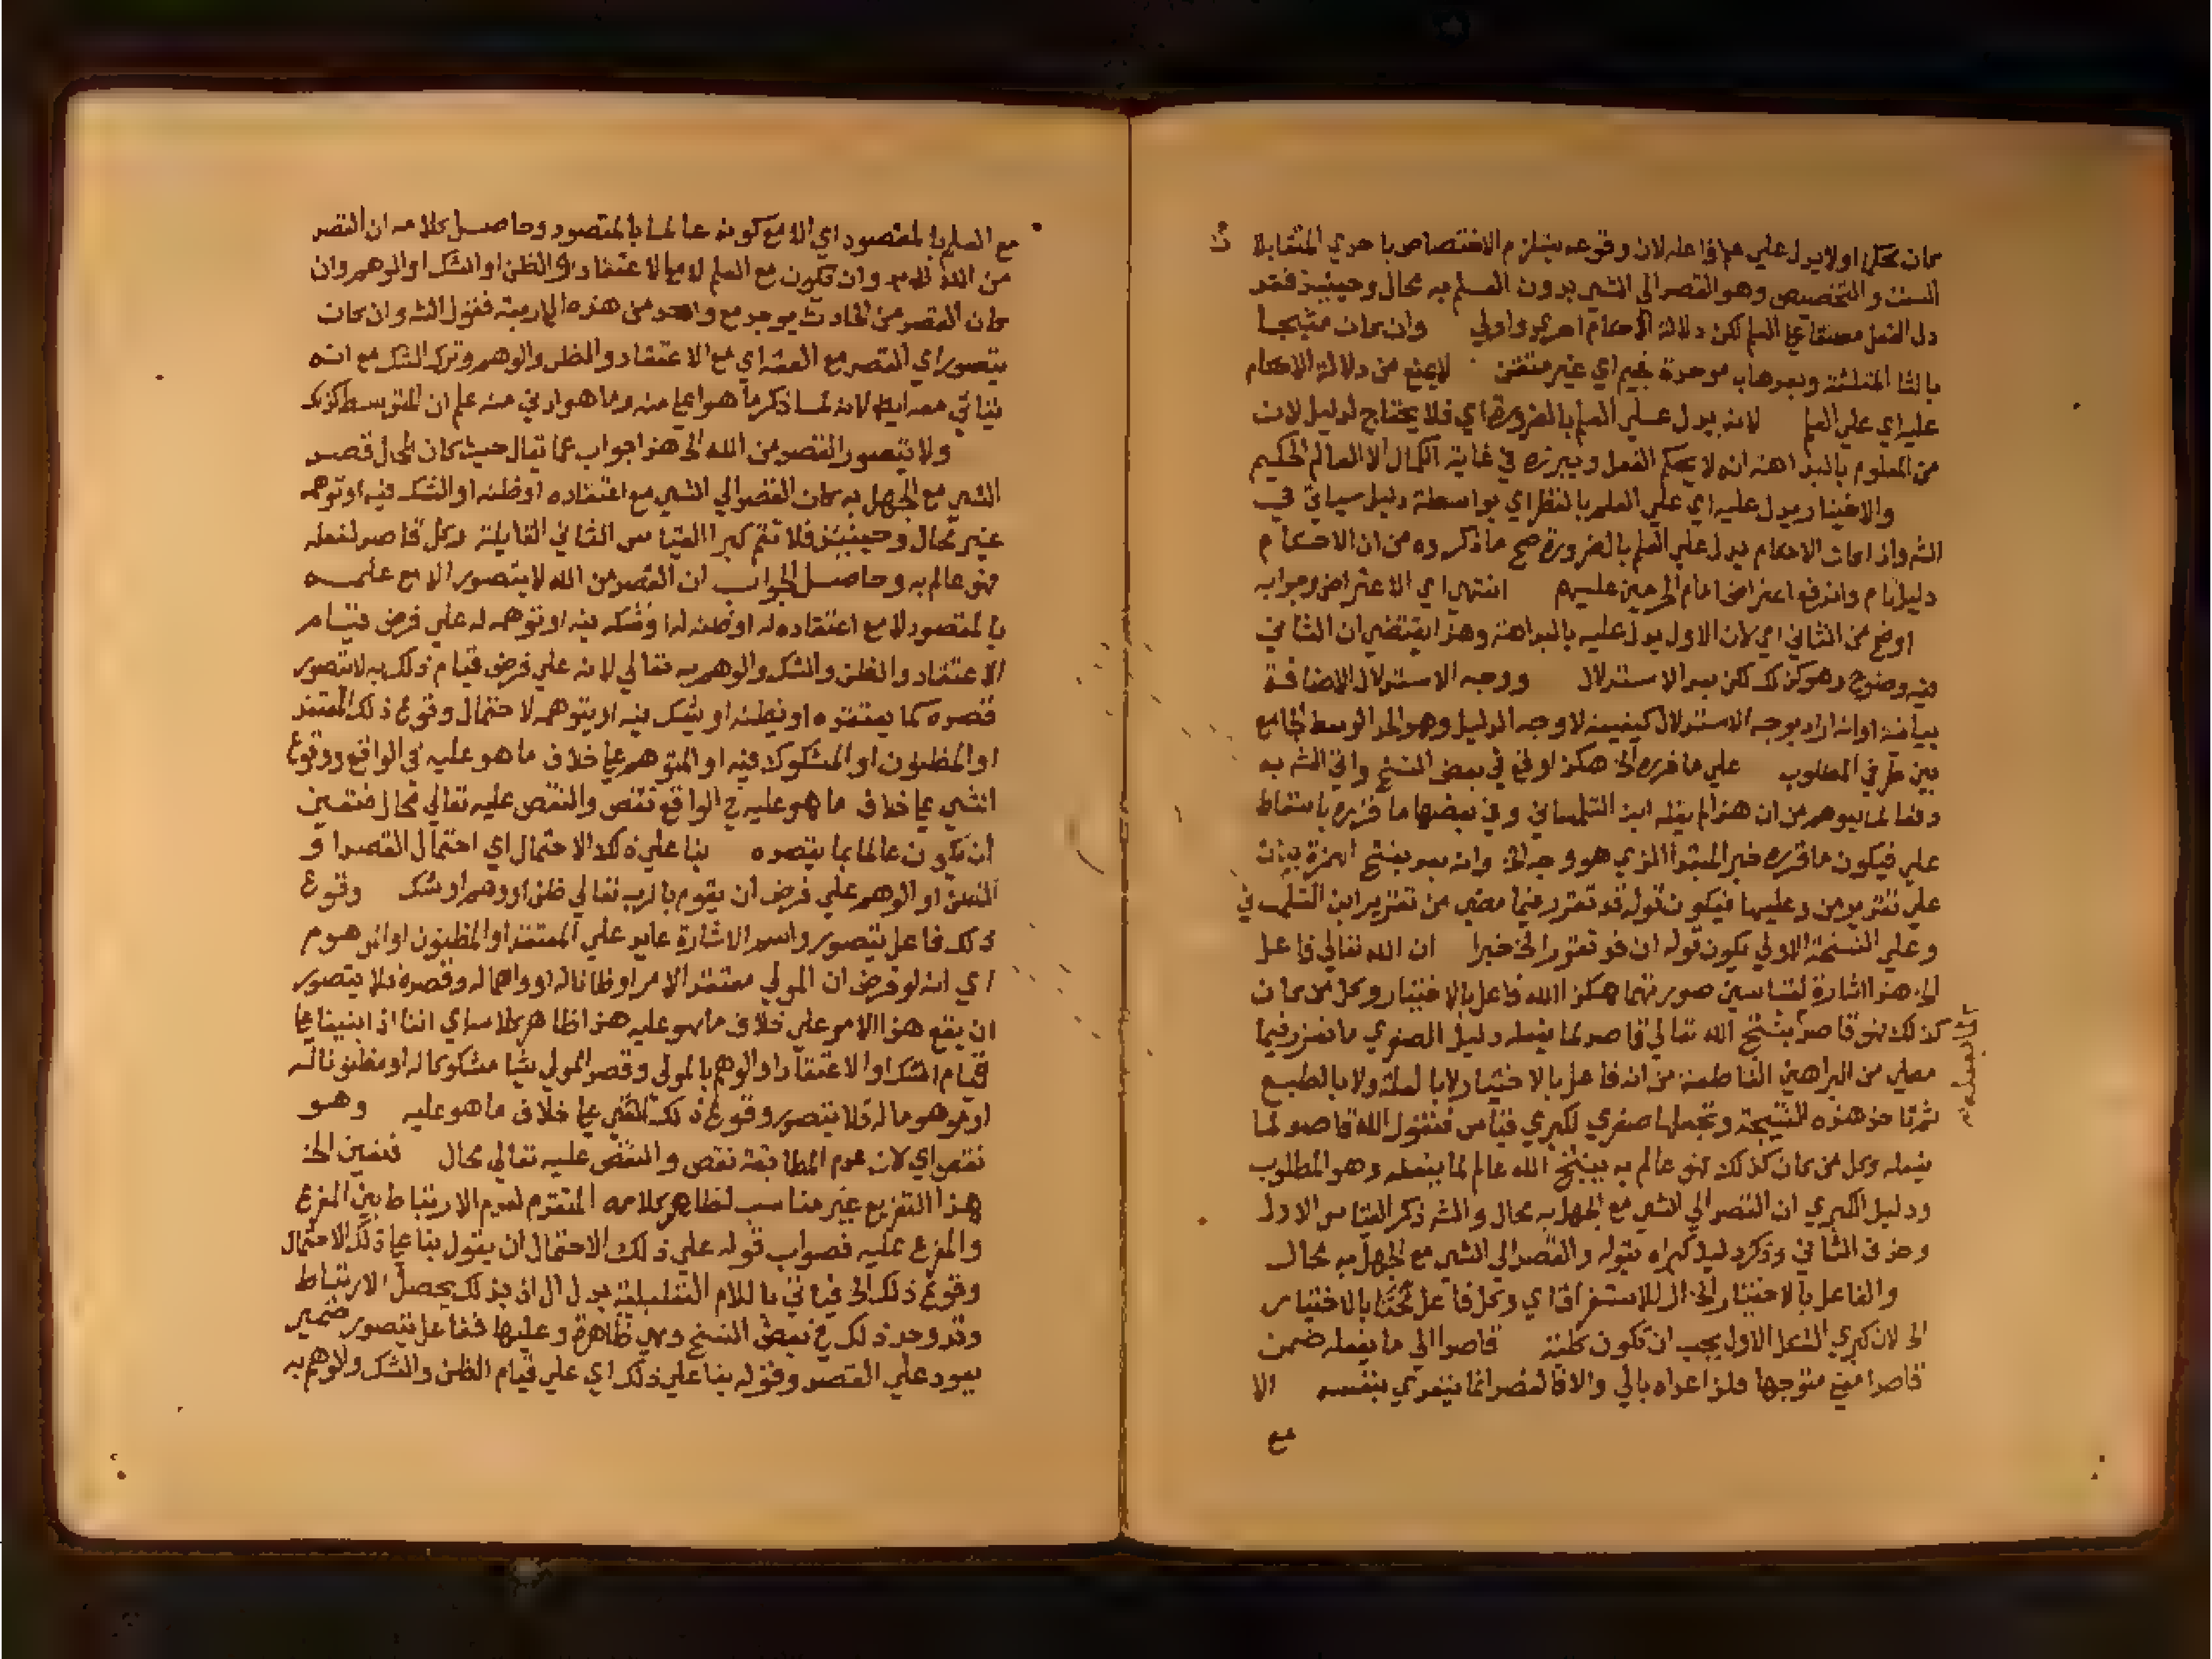 كان محكما اولا يدل علي علم فاعله لان وقوعه يستلزم الاختصاص باحدي المتقابلا ت
الست والتخصيص وهو القصر الي الشي بدون العلم به محال وحينئيذ فقد
دل الفعل مطلقا علي العلم لكن دلالة الاحكام احري واولي وان كان متيجا
بالثا المثلثة وبعدها موحدة فجيم اي غير متقن لا يمنع من دلالة الاحكام
عليه اي علي العلم لانه يدل علي العلم بالضرورة اي فلا يحتاج لدليل لان
من المعلوم بالبداهة انه لا يحكم الفعل ويبرزه في غاية الكمال الا العالم الحكيم
والاختيار يدل عليه اي علي العلم بالنظر اي بواسطة دليل سياتي في
الشه واذا كان الاحكام يدل علي العلم بالضرورة صح ما ذكروه من ان الاحكام
دليل تام واندفع اعتراض امام الحرمين عليهم انتهي اي الاعتراض وجوابه
اوضح من الثاني اي لان الاول يدل عليه بالبداهة وهذا يقتضي ان الثاني
فيه وضوح وهو كذلك لكن بعد الاستدلال ووجه الاستدلال الاضافة
بيانية او انه اراد بوجه الاستدلال كيفيته لا وجه الدليل وهو الحد الوسط الجامع
بين طرفي المطلوب علي ما قرره الخ هكذا وقع في بعض النسخ واتي الشه به
دفعا لما يتوهم من ان هذا لم يقله ابن التلمساني وفي بعضها ما قرره باسقاط
علي فيكون ما قرره خبر المبتدا الذي هو وجه الخ وانه بعد بفتح الهمزة بيان
علي تقدير من وعليها فيكون قوله قد تقرر فيما مضي من تقرير ابن التلمساني
وعلي النسخة الاولي يكون قوله ان قد تقرر الخ خبرا ان الله تعالي فاعل
الخ هذا اشارة لقياسين صورتهما هكذا الله فاعل بالاختيار وكل من كان
كذلك فهو قاصد ينتج الله تعالي قاصد لما يفعله دليل الصغري ما تقرر فيما
مضي من البراهين القاطعة من انه فاعل بالاختيار لا بالعلة ولا بالطبع
ثم تاخذ هذه النتيجة وتجعلها صغري لكبري قياس فتقول الله قاصد لما
يفعله وكل من كان كذلك فهو عالم به ينتج الله عالم لما يفعله وهو المطلوب
ودليل الكبري ان القصد الي الشي مع الجهل به محال والشه ذكر القياس الاول
وحذف الثاني وذكر دليل كبراه بقوله والقصد الي الشي مع الجهل به محال
والفاعل بالاختيار الخ ال للاستغراق اي وكل فاعل بالاختيار
الخ لان كبري الشكل الاول يجب ان تكون كلية قاصدا الي ما يفعله ضمن
قاصدا معني متوجها فلذا عداه بالي والا فالقصد انما يتعدي بنفسه الا
مع
مع العلم بالمقصود اي الا مع كونه عالما بالمقصود وحاصل كلامه ان القصد
من الله لا بد وان يكون مع العلم لا مع الاعتقاد او الظن او الشك او الوهم وان
كان القصد من الحادث يوجد مع واحد من هذه الاربعة فقول الشه وان كان
يتصور اي القصد مع العقد اي مع الاعتقاد والظن والوهم وترك الشك مع انه
يتاتي معه ايضا لانه لما ذكر ما هو اعلي منه وما هو ادني منه علم ان المتوسط كذلك
ولا يتصور القصد من الله الخ هذا جواب عما يقال حيث كان المحال قصد
الشي مع الجهل به كان القصد الي الشي مع اعتقاده او ظنه او الشك فيه او توهمه
غير محال وحينئيذ فلا تتم كبرا القياس الثاني القايلة وكل قاصد لفعله
فهو عالم به وحاصل الجواب ان القصد من الله لا يتصور الا مع علمه
بالمقصود لا مع اعتقاده له او ظنه له او شكه فيه او توهمه له علي فرض قيام
الاعتقاد والظن والشك والوهم به تعالي لانه علي فرض قيام ذلك به لا يتصور
قصده كما يعتقده او يظنه او يشك فيه او يتوهمه لاحتمال وقوع ذلك المعتقد
او المظنون او المشكوك فيه او المتوهم علي خلاف ما هو عليه في الواقع ووقوع
الشي علي خلاف ما هو عليه في الواقع نقص والنقص عليه تعالي محال فتعين
ان يكون عالما بما يقصده بنا علي ذلك الاحتمال اي احتمال القصد او
الظن او الوهم علي فرض ان يقوم بالرب تعالي ظن او وهم او شك وقوع
ذلك فاعل يتصور واسم الاشارة عايد علي المعتقد او المظنون او الموهوم
اي انه لو فرض ان المولي معتقد الامر او ظانا له او واهما له وقصده فلا يتصور
ان يقع هذا الامر علي خلاف ما هو عليه هذا ظاهر كلامه اي اننا اذا بنينا علي
قيام الشك او الاعتقاد او الوهم بالمولي وقصد المولي شيا مشكوكا له او مظنونا له
او موهوما له فلا يتصور وقوع ذلك الشي علي خلاف ما هو عليه وهو
نقص اي لان عدم المطابقة نقص والنقص عليه تعالي محال فتعين الخ
هذا التفريع غير مناسب لظاهر كلامه المتقدم لعدم الارتباط بين المفرع
والمفرع عليه فصواب قوله علي ذلك الاحتمال ان يقول بنا علي ذلك الاحتمال
وقوع ذلك الخ فياتي باللام التعليلية بدل ال اذ بذلك يحصل الارتباط
وقد وجد ذلك في بعض النسخ وهي ظاهرة وعليها ففاعل يتصور ضمير
يعود علي القصد وقوله بنا علي ذلك اي علي قيام الظن والشك والوهم به